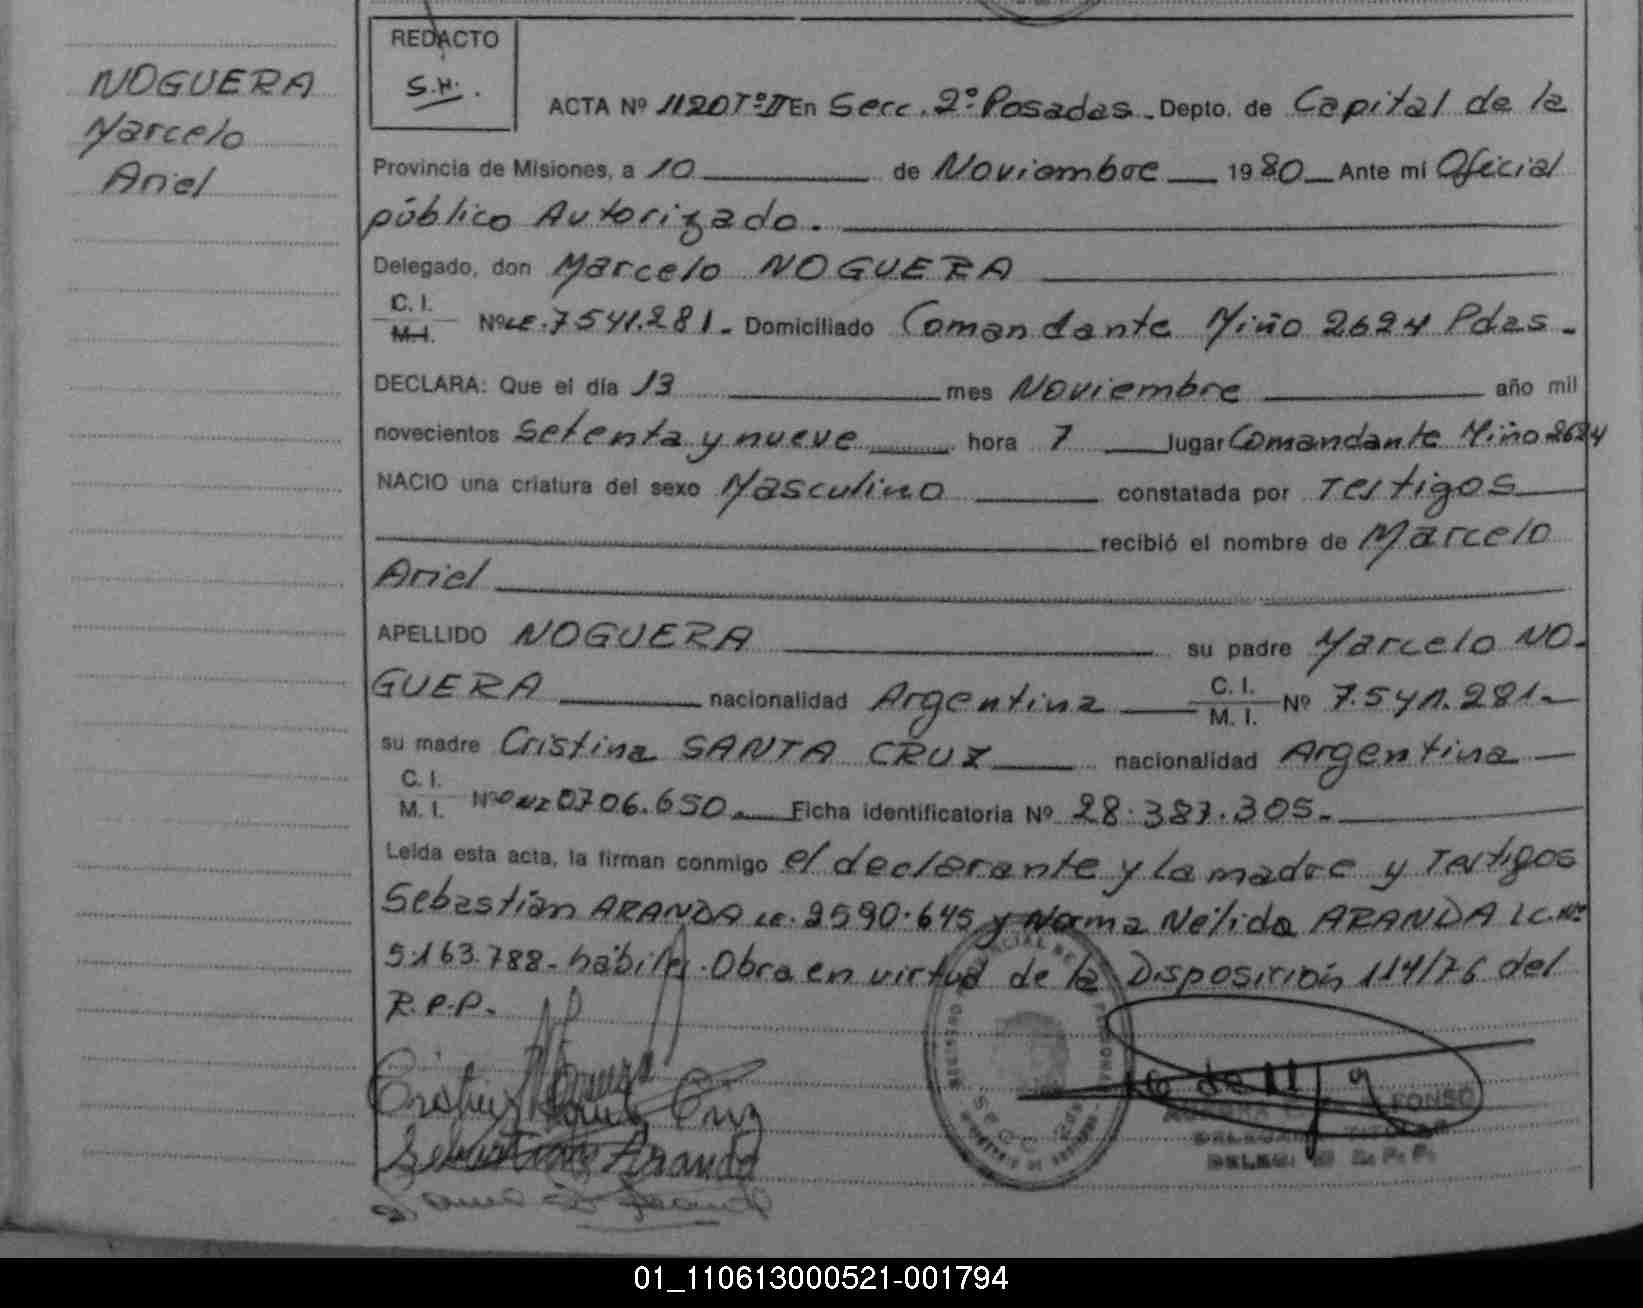 NOGUERA
Marcelo
Ariel
REDACTO
S.H.
ACTA Nº 1120 Tº II En Secc. 2º Posadas. Depto. de Capital de la
Provincia de Misiones, a 10 de Noviembre 1980 Ante mi Oficial
público Autorizado.
Delegado, don Marcelo NOGUERA
C. I.
M. I. Nº LE. 7541.281. Domiciliado Comandante Miño 2624 Pdas.
DECLARA: Que el día 13 mes Noviembre año mil
novecientos Setenta y nueve hora 7 Jugar Comandante Miño 2624
NACIO una criatura del sexo Masculino constatada por Testigos
recibió el nombre de Marcelo
Ariel
APELLIDO NOGUERA su padre Marcelo NO-
GUERA nacionalidad Argentina C. I. M. I. Nº 7.541.281.
su madre Cristina SANTA CRUZ nacionalidad Argentina
C. I.
M. I. Nº 0706.650. Ficha identificatoria Nº 28.387.305.
Leída esta acta, la firman conmigo el declarante y la madre y Testigos
Sebastián ARANDA LE. 2590.645 y Norma Nélida ARANDA LC. Nº
5.163.788. hábiles. Obra en virtud de la Disposición 114/76 del
R.P.P.
Sebastian Aranda
01_110613000521-001794